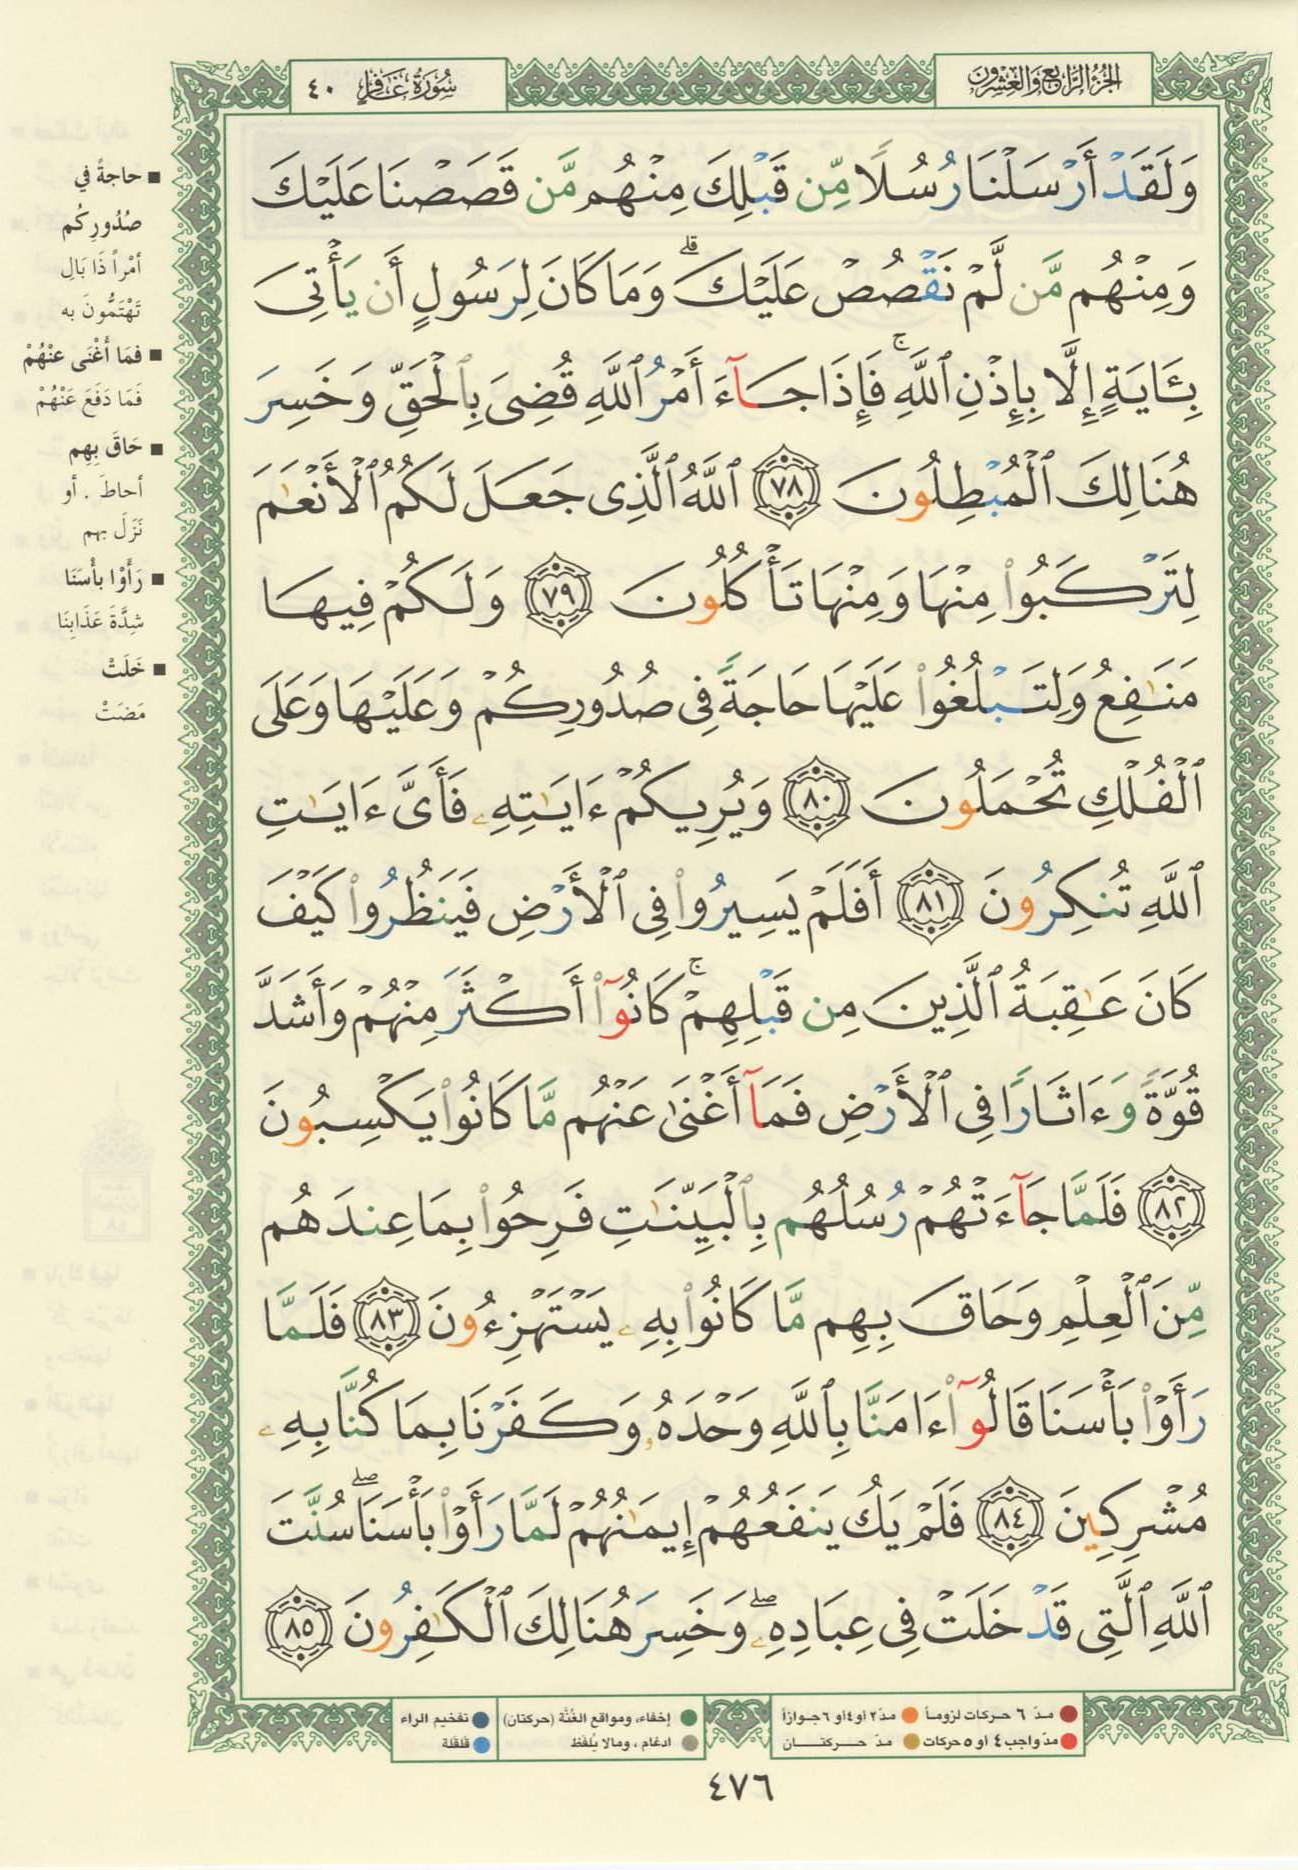 الجزء الرابع والعشرون
سورة غافر ٤٠
وَلَقَدْ أَرْسَلْنَا رُسُلًا مِّن قَبْلِكَ مِنْهُم مَّن قَصَصْنَا عَلَيْكَ
وَمِنْهُم مَّن لَّمْ نَقْصُصْ عَلَيْكَ ۗ وَمَا كَانَ لِرَسُولٍ أَن يَأْتِىَ
بِـَٔايَةٍ إِلَّا بِإِذْنِ ٱللَّهِ ۚ فَإِذَا جَآءَ أَمْرُ ٱللَّهِ قُضِىَ بِٱلْحَقِّ وَخَسِرَ
هُنَالِكَ ٱلْمُبْطِلُونَ ٧٨ ٱللَّهُ ٱلَّذِى جَعَلَ لَكُمُ ٱلْأَنْعَـٰمَ
لِتَرْكَبُوا۟ مِنْهَا وَمِنْهَا تَأْكُلُونَ ٧٩ وَلَكُمْ فِيهَا
مَنَـٰفِعُ وَلِتَبْلُغُوا۟ عَلَيْهَا حَاجَةً فِى صُدُورِكُمْ وَعَلَيْهَا وَعَلَى
ٱلْفُلْكِ تُحْمَلُونَ ٨٠ وَيُرِيكُمْ ءَايَـٰتِهِۦ فَأَىَّ ءَايَـٰتِ
ٱللَّهِ تُنكِرُونَ ٨١ أَفَلَمْ يَسِيرُوا۟ فِى ٱلْأَرْضِ فَيَنظُرُوا۟ كَيْفَ
كَانَ عَـٰقِبَةُ ٱلَّذِينَ مِن قَبْلِهِمْ ۚ كَانُوٓا۟ أَكْثَرَ مِنْهُمْ وَأَشَدَّ
قُوَّةً وَءَاثَارًا فِى ٱلْأَرْضِ فَمَآ أَغْنَىٰ عَنْهُم مَّا كَانُوا۟ يَكْسِبُونَ
٨٢ فَلَمَّا جَآءَتْهُمْ رُسُلُهُم بِٱلْبَيِّنَـٰتِ فَرِحُوا۟ بِمَا عِندَهُم
مِّنَ ٱلْعِلْمِ وَحَاقَ بِهِم مَّا كَانُوا۟ بِهِۦ يَسْتَهْزِءُونَ ٨٣ فَلَمَّا
رَأَوْا۟ بَأْسَنَا قَالُوٓا۟ ءَامَنَّا بِٱللَّهِ وَحْدَهُۥ وَكَفَرْنَا بِمَا كُنَّا بِهِۦ
مُشْرِكِينَ ٨٤ فَلَمْ يَكُ يَنفَعُهُمْ إِيمَـٰنُهُمْ لَمَّا رَأَوْا۟ بَأْسَنَا ۖ سُنَّتَ
ٱللَّهِ ٱلَّتِى قَدْ خَلَتْ فِى عِبَادِهِۦ ۖ وَخَسِرَ هُنَالِكَ ٱلْكَـٰفِرُونَ ٨٥
■ حاجةً في
صُدُورِكُم
أمْراً ذَا بَالٍ
تَهْتَمُّونَ به
■ فَمَا أَغْنَى عنْهُمْ
فَمَا دَفَعَ عَنْهُمْ
■ حَاقَ بِهِم
أحاطَ . أو
نَزَلَ بهم
■ رَأَوْا بأْسَنَا
شِدَّةَ عَذَابِنَا
■ خَلَتْ
مَضَتْ
مدّ ٦ حركات لزوماً ● مدّ ٢ أو ٤ أو ٦ جوازاً
مدّ واجب ٤ أو ٥ حركات ● مدّ حركتان
إخفاء، ومواقع الغُنَّة (حركتان)
ادغام ، ومالا يُلفَظ
تفخيم الراء
قلقلة
٤٧٦